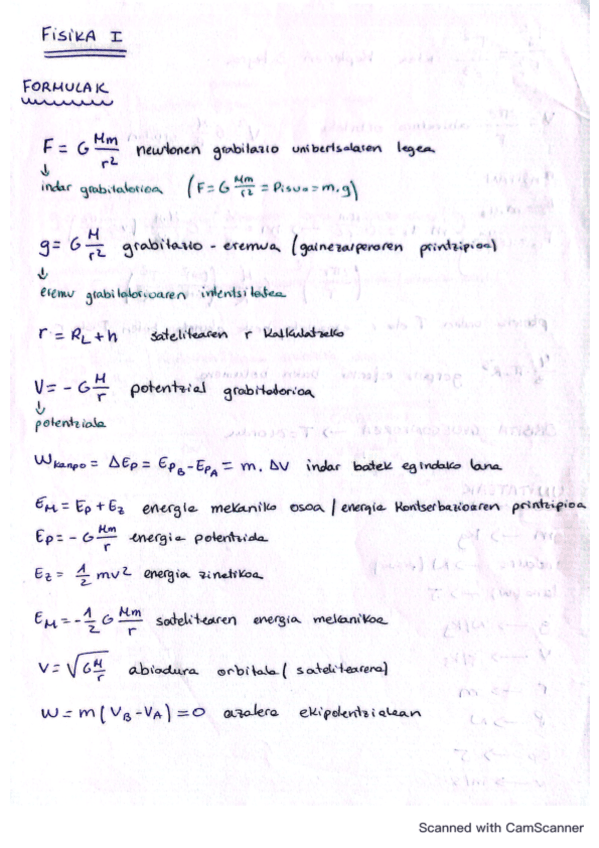 FISIKA I
FORMULAK
F = G Mm/r² newtonen grabitazio unibertsalaren legea
↓
indar grabitatorioa (F = G Mm/r² = Pisua = m.g)
g = G M/r² grabitazio-eremua (gainezarpenaren printzipioa)
↓
eremu grabitatorioaren intentsitatea
r = RL + h satelitearen r kalkulatzeko
V = -G M/r potentzial grabitatorioa
↓
potentziala
Wkanpo = ΔEp = EpB - EpA = m. ΔV indar batek egindako lana
EM = Ep + Ez energia mekaniko osoa / energia kontserbazioaren printzipioa
Ep = -G Mm/r energia potentziala
Ez = 1/2 mv² energia zinetikoa
EM = -1/2 G Mm/r satelitearen energia mekanikoa
V = √(G M/r) abiadura orbitala (satelitearena)
W = m (VB - VA) = 0 azalera ekipotentzialean
Scanned with CamScanner